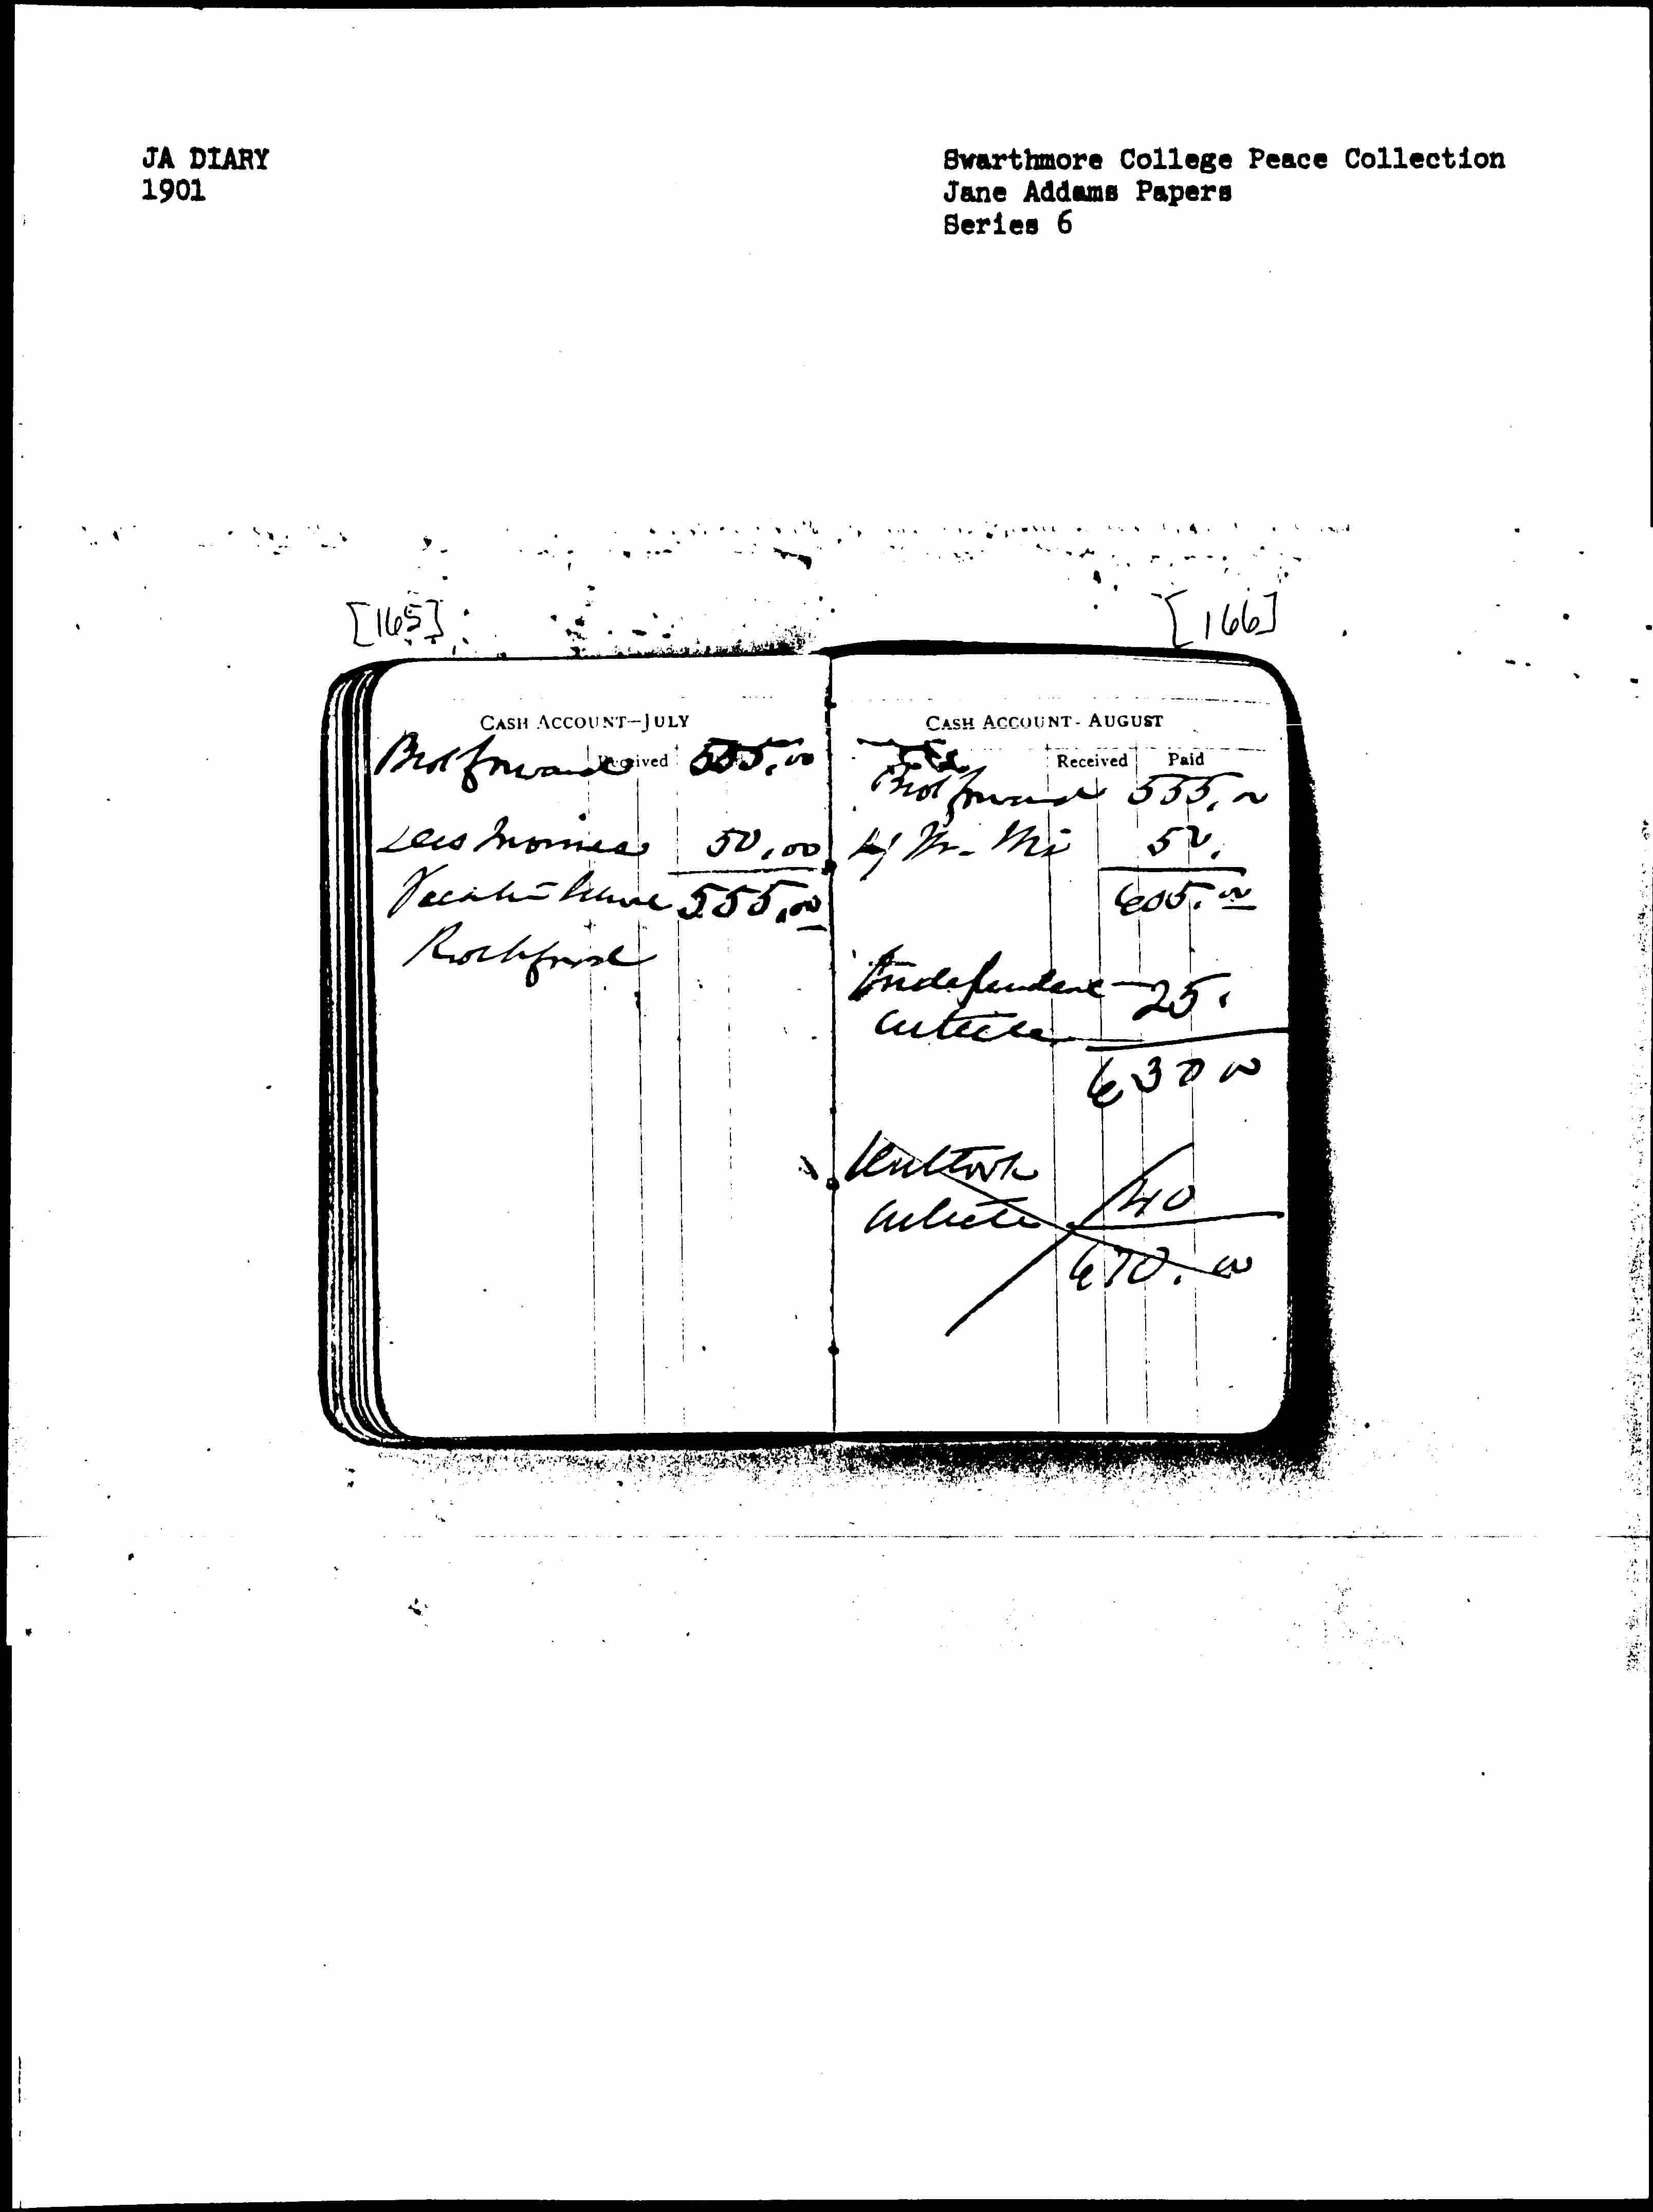 JA DIARY
1901
Swarthmore College Peace Collection
Jane Addams Papers
Series 6
[165]
[166]
CASH ACCOUNT—JULY
Received
Brot forward 505.00
50.00
555.00
Rockford
CASH ACCOUNT - AUGUST
Received Paid
Brot forward 555.00
50.
605.00
Independent 25.
article
630 00
Outlook
article 40
670.00